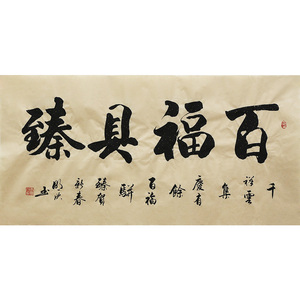 百福具臻
千
祥雲
集
慶有
餘
百福
駢
臻賀
新春
书